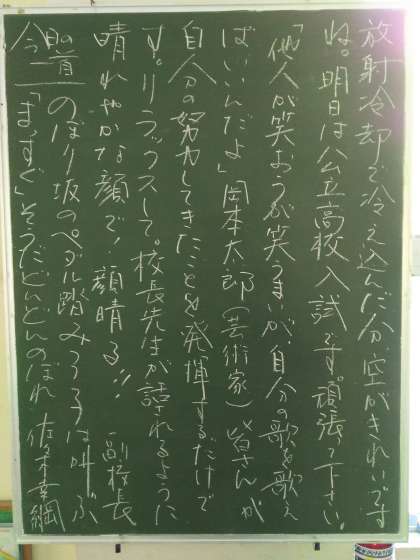 放射冷却で冷え込んだ分、空がきれいです
ね。明日は公立高校入試です。頑張って下さい。
「他人が笑おうが笑うまいが、自分の歌を歌え
ばいいんだよ」岡本太郎(芸術家)皆さんが
自分の努力してきたことを発揮するだけで
す。リラックスして。校長先生が話されるように
晴れやかな顔で!顔晴る!! 副校長
今日の一首 のぼり坂のペダル踏みつつ子は叫ぶ
「まっすぐ」そうだどんどんのぼれ 佐々木幸綱